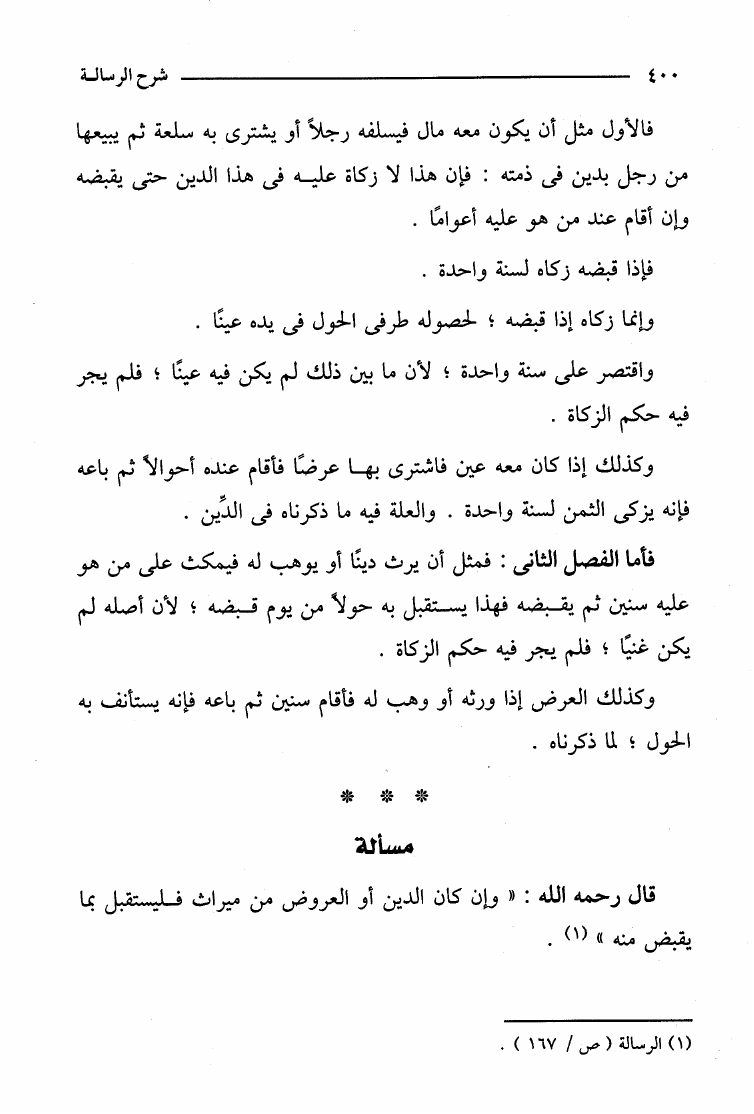 ٤٠٠ شرح الرسالة
فالأول مثل أن يكون معه مال فيسلفه رجلاً أو يشترى به سلعة ثم يبيعها
من رجل بدين فى ذمته : فإن هذا لا زكاة عليه فى هذا الدين حتى يقبضه
وإن أقام عند من هو عليه أعوامًا .
فإذا قبضه زكاه لسنة واحدة .
وإنما زكاه إذا قبضه ؛ لحصوله طرفى الحول فى يده عينًا .
واقتصر على سنة واحدة ؛ لأن ما بين ذلك لم يكن فيه عينًا ؛ فلم يجر
فيه حكم الزكاة .
وكذلك إذا كان معه عين فاشترى بها عرضًا فأقام عنده أحوالاً ثم باعه
فإنه يزكى الثمن لسنة واحدة . والعلة فيه ما ذكرناه فى الدِّين .
فأما الفصل الثانى : فمثل أن يرث دينًا أو يوهب له فيمكث على من هو
عليه سنين ثم يقبضه فهذا يستقبل به حولاً من يوم قبضه ؛ لأن أصله لم
يكن غنيًا ؛ فلم يجر فيه حكم الزكاة .
وكذلك العرض إذا ورثه أو وهب له فأقام سنين ثم باعه فإنه يستأنف به
الحول ؛ لما ذكرناه .
* * *
مسألة
قال رحمه الله : « وإن كان الدين أو العروض من ميراث فليستقبل بما
يقبض منه » (١) .
(١) الرسالة ( ص / ١٦٧ ) .